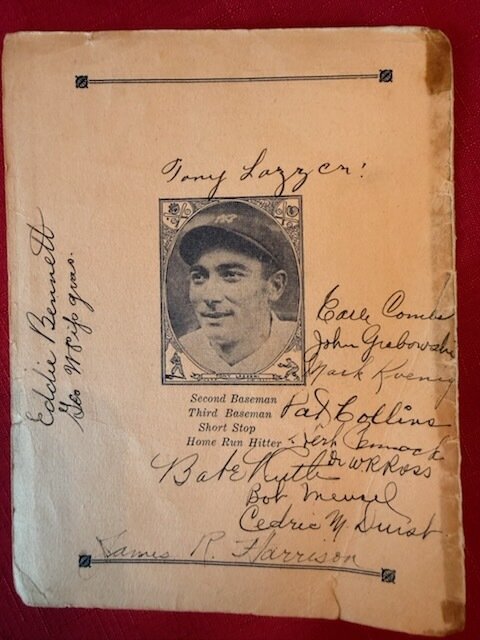 Tony Lazzeri
NY
TONY LAZZERI
Second Baseman
Third Baseman
Short Stop
Home Run Hitter
Eddie Bennett
Earle Combs
John Grabowski
Mark Koenig
Pat Collins
Herb Pennock
Dr WR Ross
Babe Ruth
Bob Meusel
Cedric M Durst
James R. Harrison